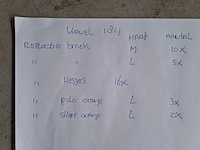 Kavel 1024
MAAT AANTAL
REFLECTIE broek M 10x
" " L 5x
" Hesjes 16x
" polo orange L 3x
" shirt orange L 2x